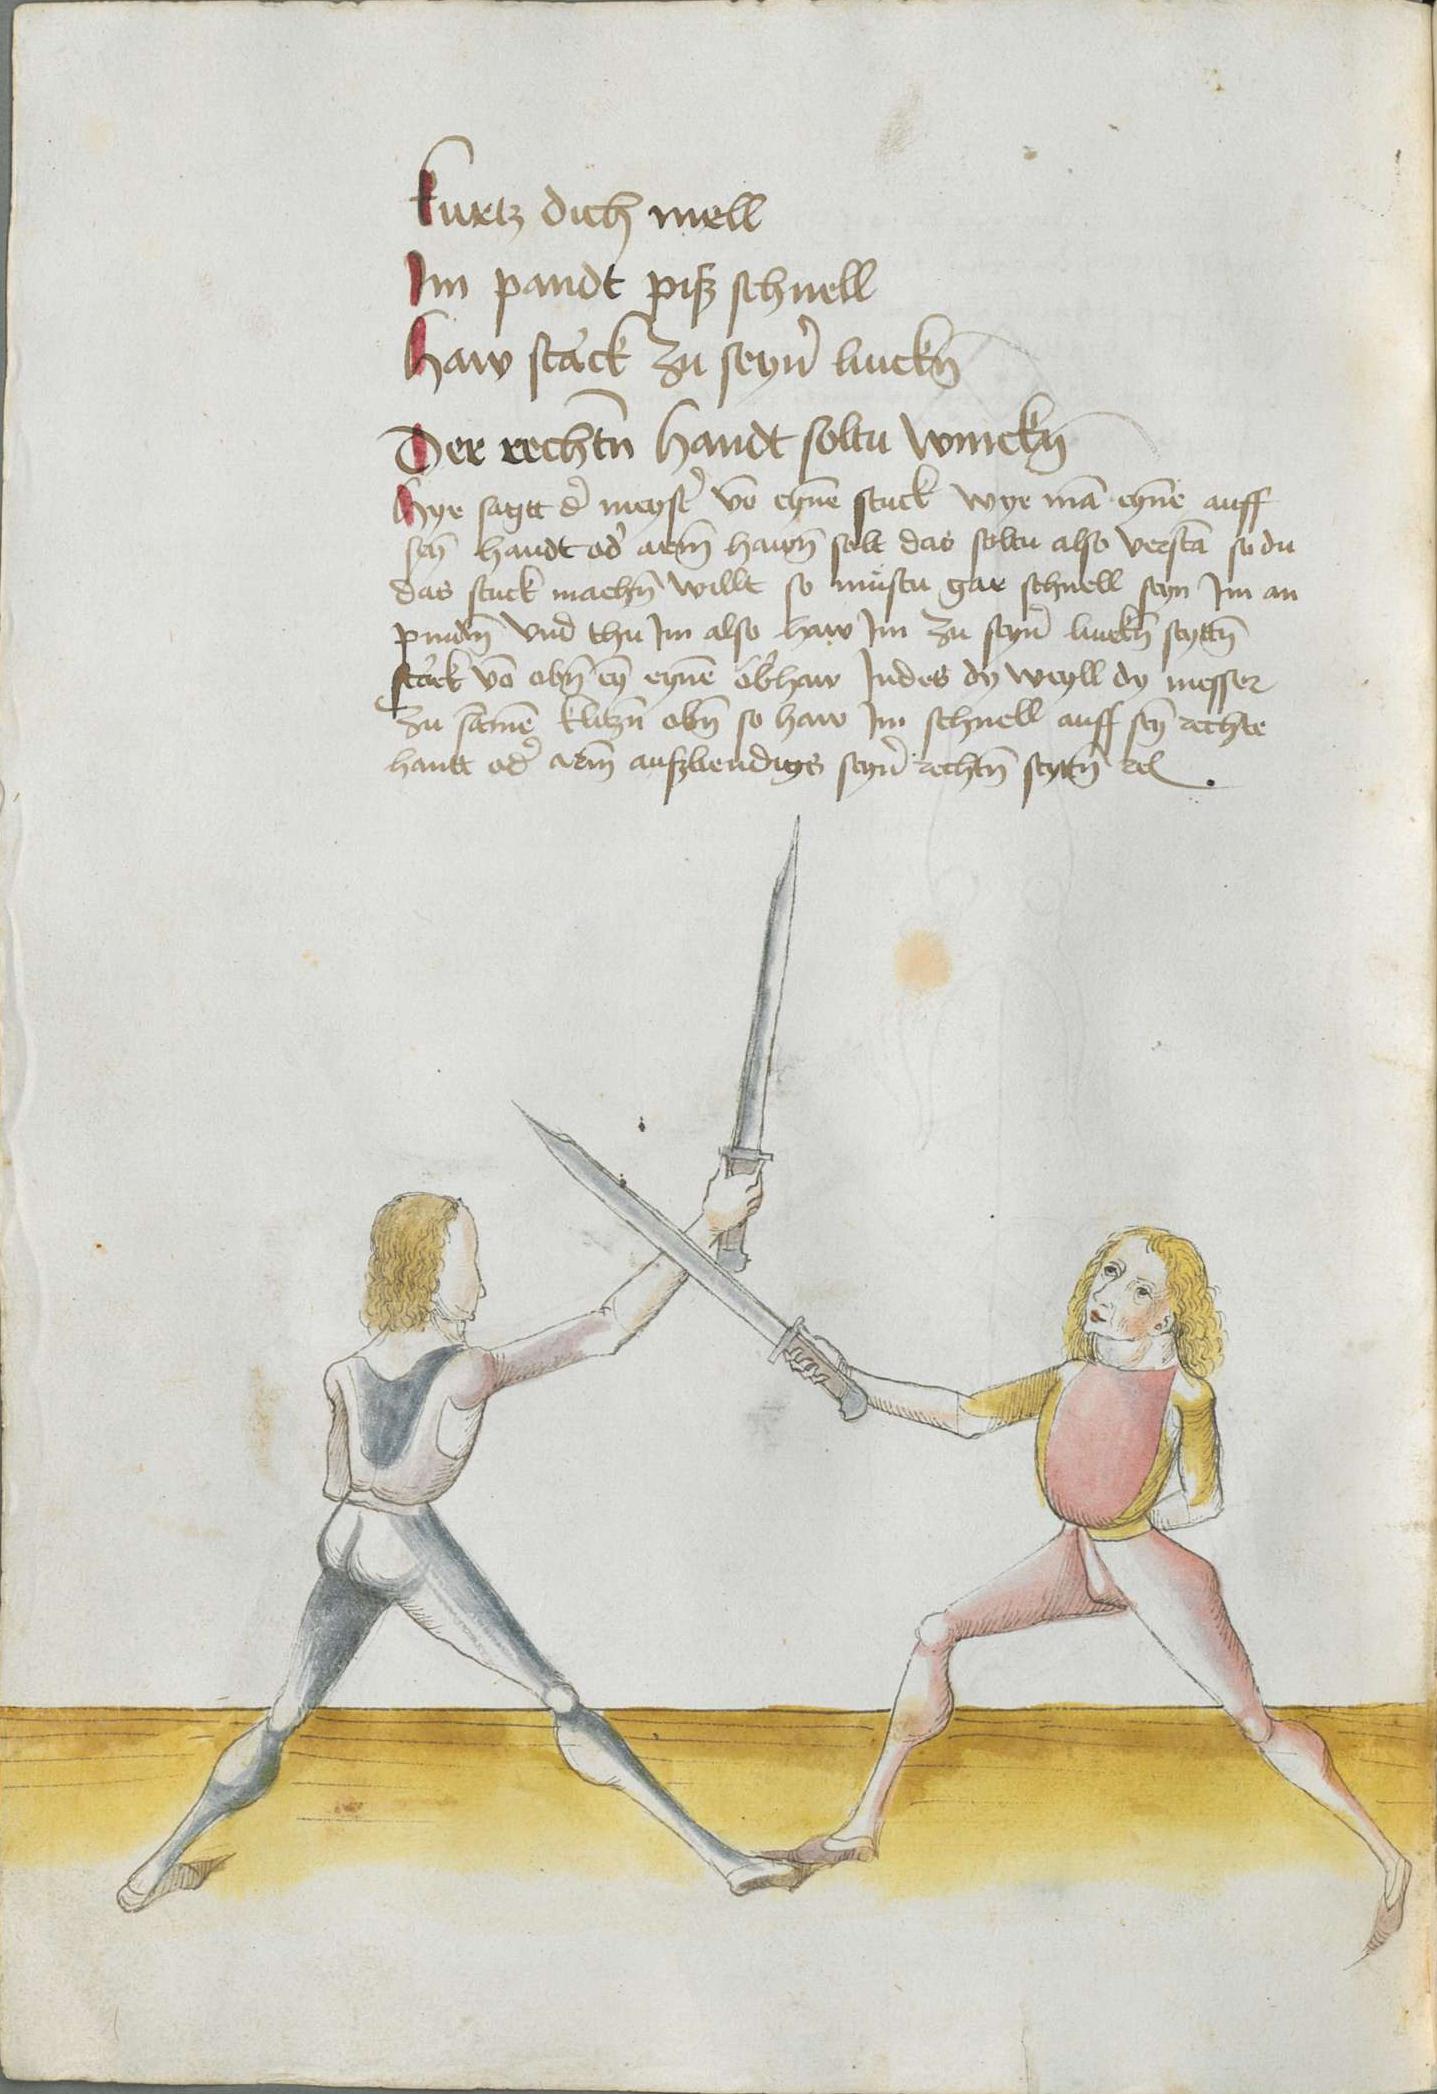 kurtz dich mell
Im pandt piß schnell
haw starck zu seyner linckn̄
Der rechtn̄ handt soltu winckn̄
hye sagtt d' meyst' vō eyne stuck wye mā eyne auff
sey̅ handt od' arm̄ hawn̄ solt das soltu also verstā so du
das stuck machn̄ willt so mustu gar schnell seyn Im an
pindn̄ vnd thu Im also haw Im zu seyn' linckn̄ seyttn̄
starck vō obn̄ ey̅ eyne ob'haw Indes dy weyll dy messer
zu same klitzn̄ obn̄ so haw Im schnell auff sey̅ rechte
hantt od' arm̄ außbendigs seyn' rechtn̄ seyttn̄ rc